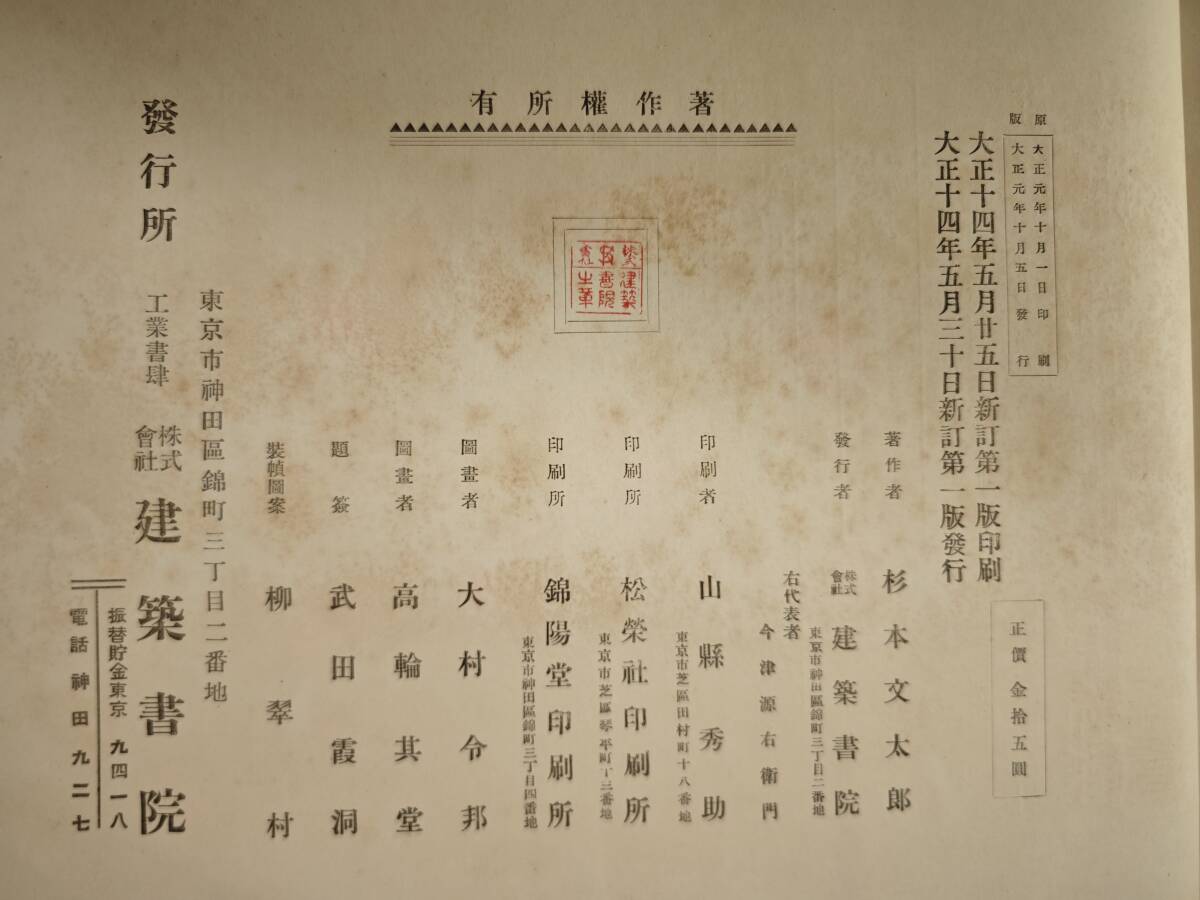 著作權所有
原版
大正元年十月一日印刷
大正元年十月五日發行
大正十四年五月廿五日新訂第一版印刷
大正十四年五月三十日新訂第一版發行
正價金拾五圓
著作者 杉本文太郎
發行者 株式會社 建築書院
東京市神田區錦町三丁目二番地
右代表者 今津源右衛門
印刷者 山縣秀助
東京市芝區田村町十八番地
印刷所 松榮社印刷所
東京市芝區琴平町十三番地
印刷所 錦陽堂印刷所
東京市神田區錦町三丁目四番地
圖畫者 大村令邦
圖畫者 高輪其堂
題簽 武田霞洞
裝幀圖案 柳翠村
東京市神田區錦町三丁目二番地
發行所 工業書肆 株式會社 建築書院
振替貯金東京九四一八
電話神田九二七